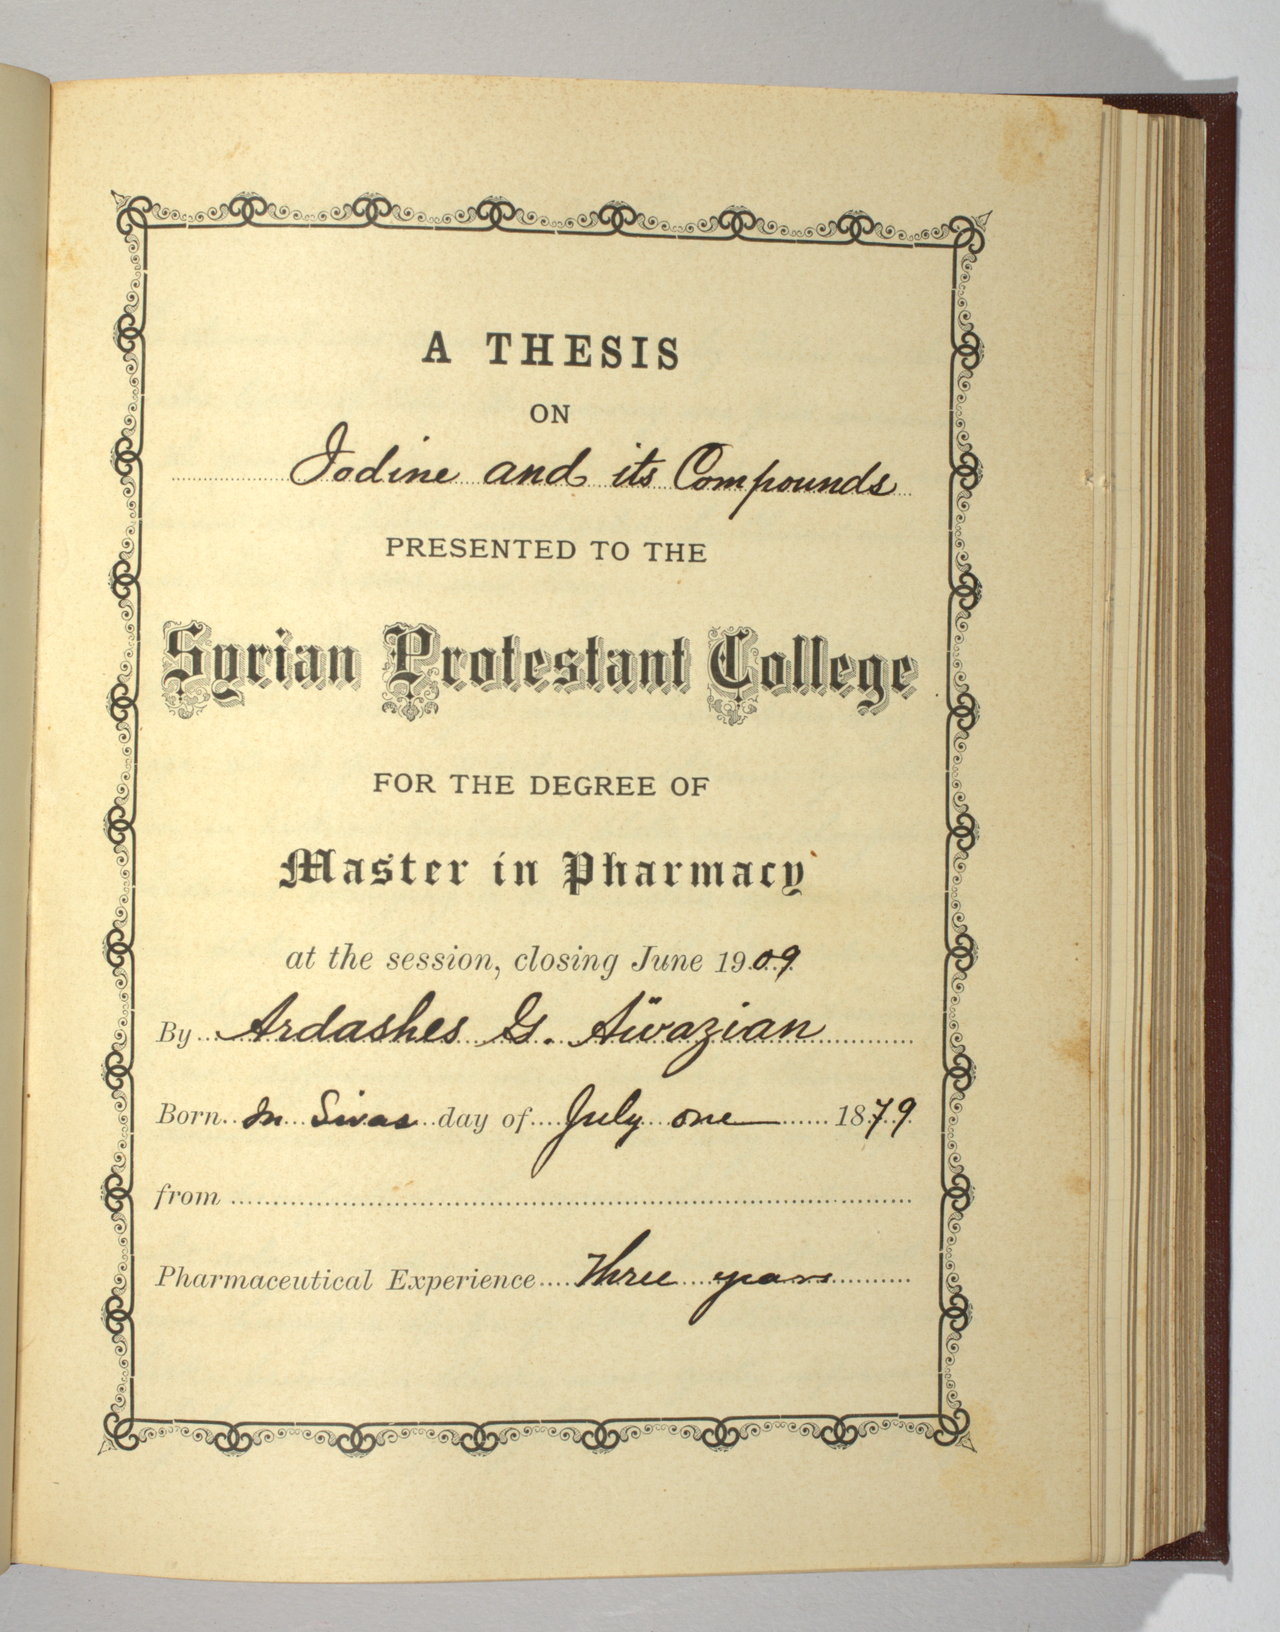 A THESIS
ON
Iodine and its Compounds
PRESENTED TO THE
Syrian Protestant College
FOR THE DEGREE OF
Master in Pharmacy
at the session, closing June 1909
By Ardashes G. Aïvazian
Born In Sivas day of July one 1879
from
Pharmaceutical Experience Three years